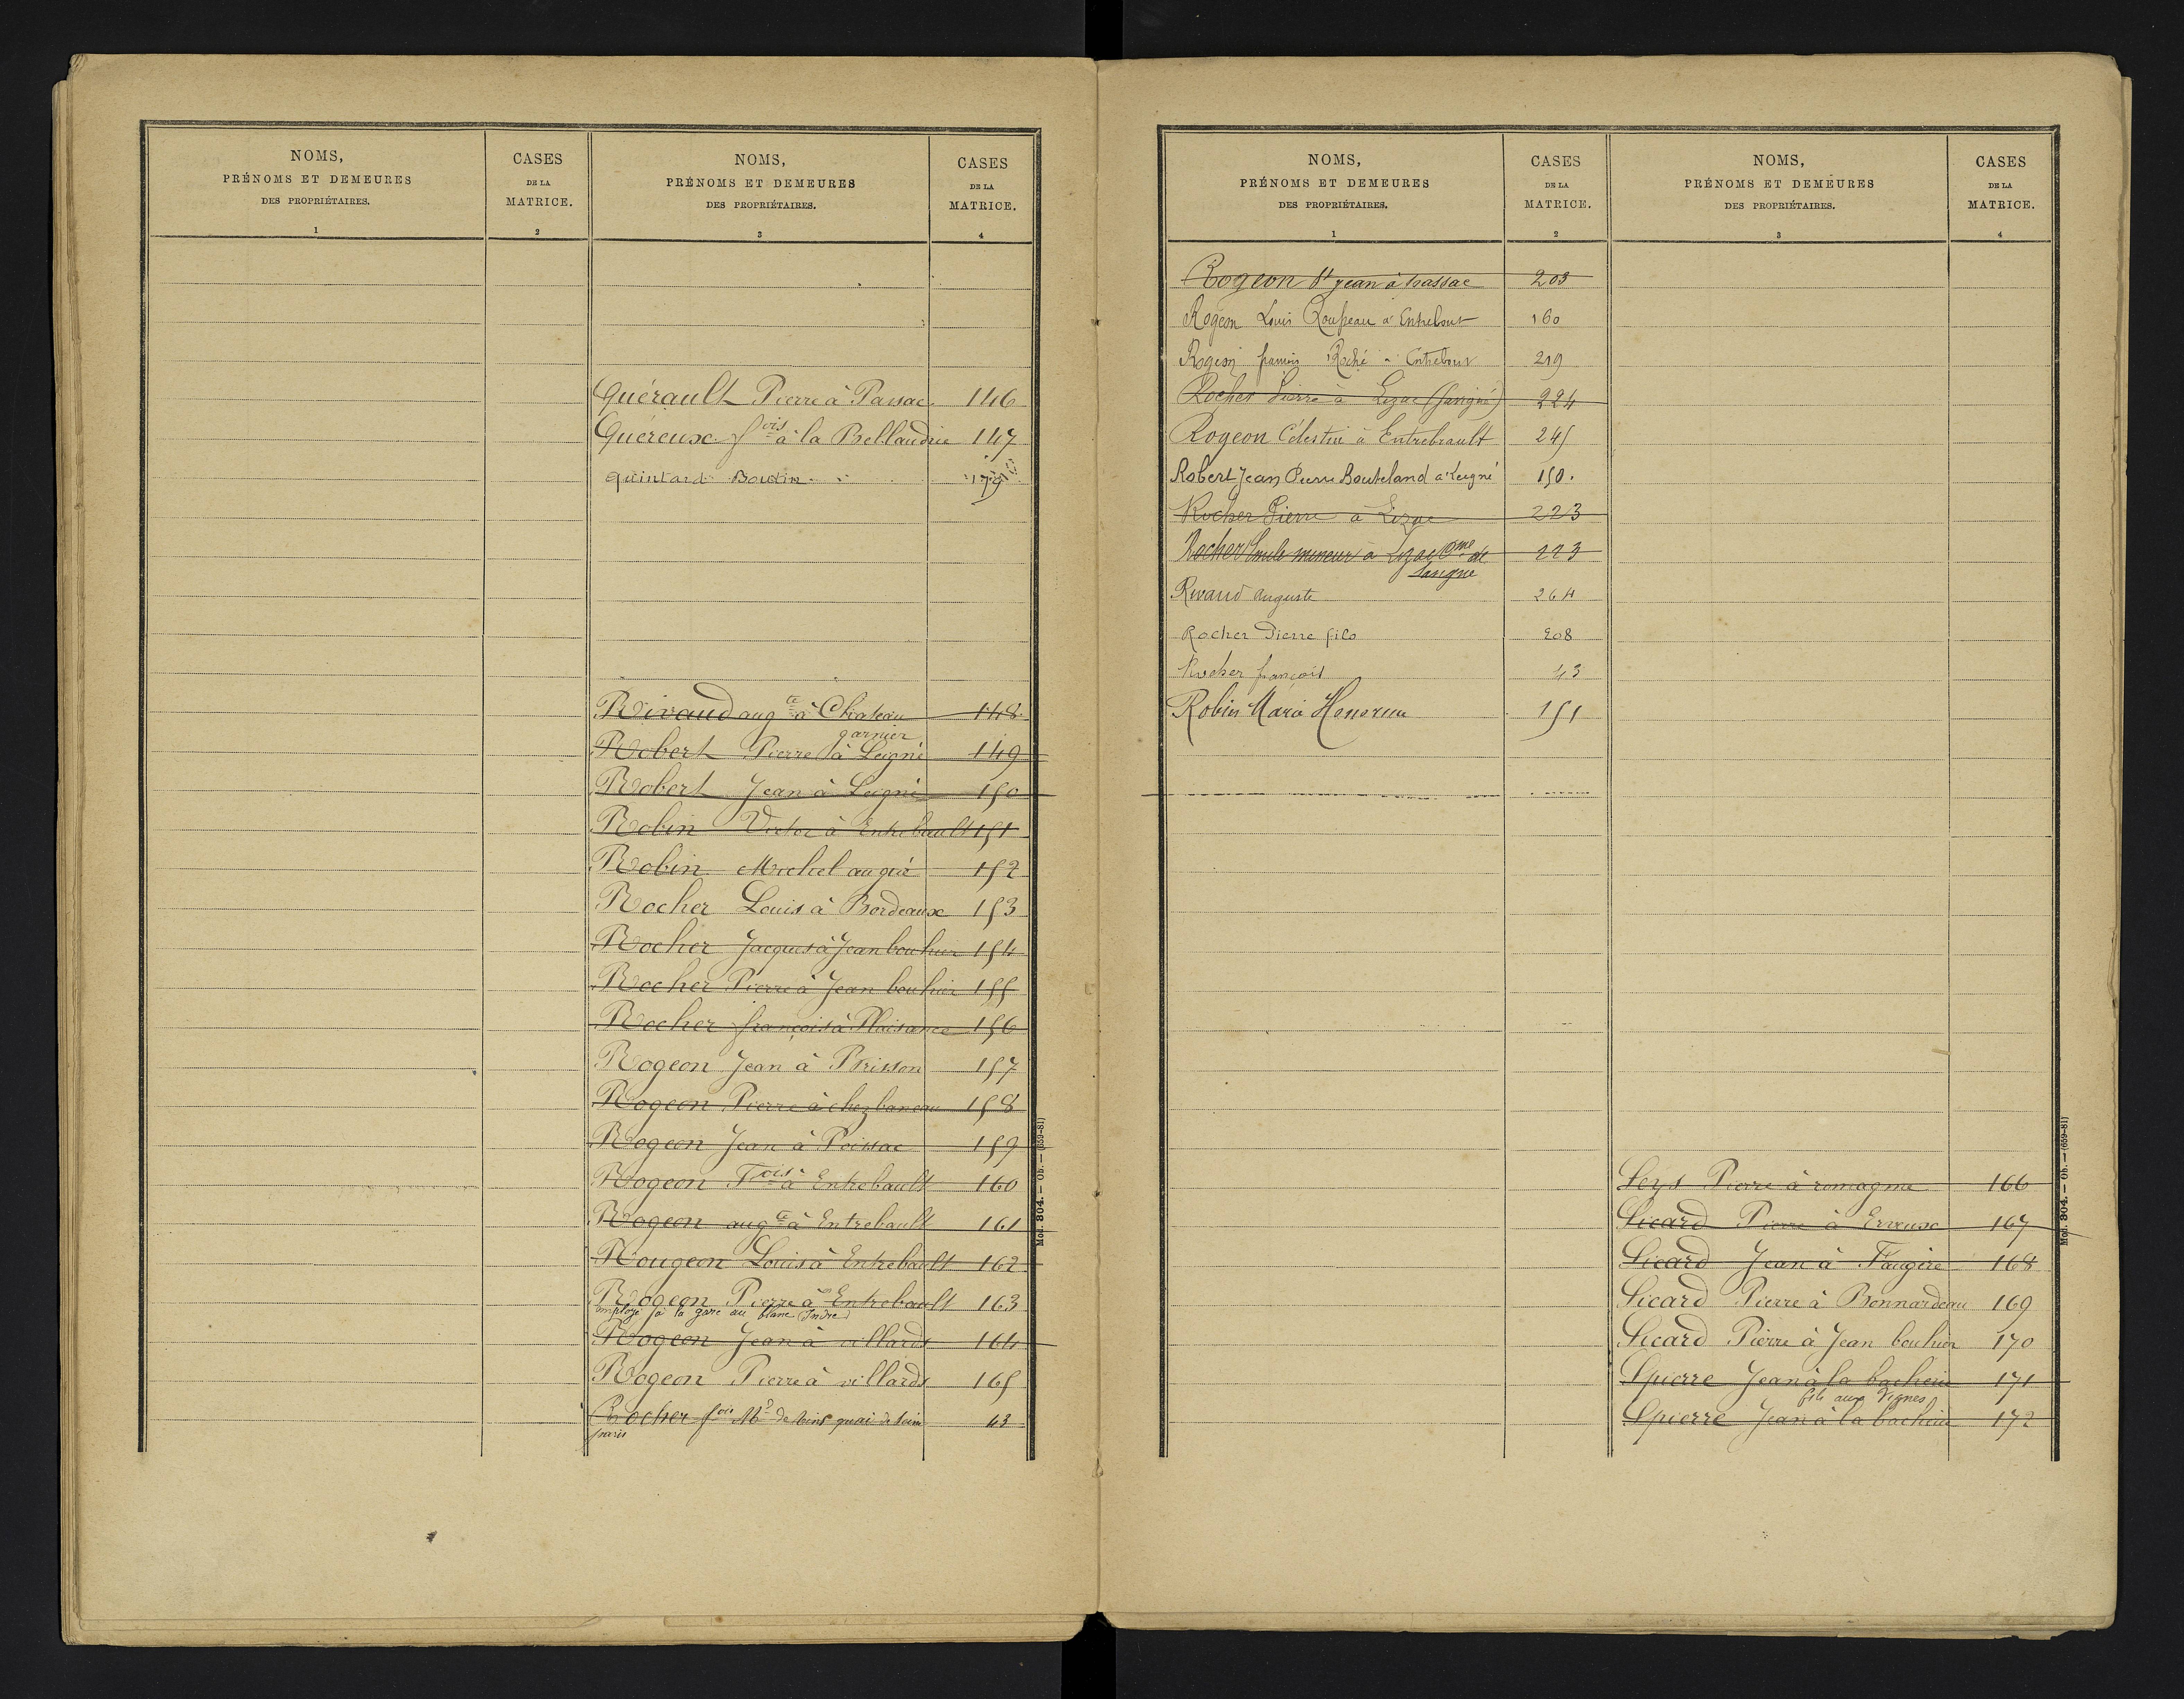 NOMS,
PRÉNOMS ET DEMEURES
DES PROPRIÉTAIRES.
1
CASES
DE LA
MATRICE.
2
NOMS,
PRÉNOMS ET DEMEURES
DES PROPRIÉTAIRES.
3
CASES
DE LA
MATRICE.
4
Quérault Pierre à Passac 146
Quéreuse fois à la Bellaudrie 147
quintard Boutin 179
Rivaud augte à Chateau 148
garnier
Robert Pierre à Leigné 149
Robert Jean à Leigné 150
Robin Victor à Entrebault 151
Robin Michel au gué 152
Rocher Louis à Bordeaux 153
Rocher Jacques à Jean bouhier 154
Rocher Pierre à Jean bouhier 155
Rocher françois à Plaisance 156
Rogeon Jean à Prisson 157
Rogeon Pierre à chez 158
Rogeon Jean à Poissac 159
Rogeon Fois à Entrebault 160
Rogeon augte à Entrebault 161
Rougeon Louis à Entrebault 162
Rogeon Pierre à Entrebault 163
employé à la gare au blanc Indre
Rogeon Jean à villards 164
Rogeon Pierre à villards 165
Rocher fois Md de vins quai de 43
paris
Mod. 804. — Ob. — (659-81)
NOMS,
PRÉNOMS ET DEMEURES
DES PROPRIÉTAIRES.
1
CASES
DE LA
MATRICE.
2
NOMS,
PRÉNOMS ET DEMEURES
DES PROPRIÉTAIRES.
3
CASES
DE LA
MATRICE.
4
Rogeon St jean à passac 203
Rogeon Louis à 160
Rogeon françois Roché 219
Rocher Pierre à Lezac (Sangné) 224
Rogeon Célestin à Entrebrault 245
Robert Jean Pierre Bouteland a Leigné 150.
Rocher Pierre à Lezac 223
Rocher Emile mineur à Lezac de 223
Sangne
Rivaud auguste 264
Rocher Pierre fils 208
Rocher françois 43
Robin Maria Honorine 151
Seys Pierre à romagne 166
Sicard Pierre à 167
Sicard Jean à Faugère 168
Sicard Pierre à Bonnardeau 169
Sicard Pierre à Jean bouhier 170
Spierre Jean à la bacherie 171
fils aux Vignes
Spierre Jean à la bacherie 172
Mod. 804. — Ob. — (659-81)